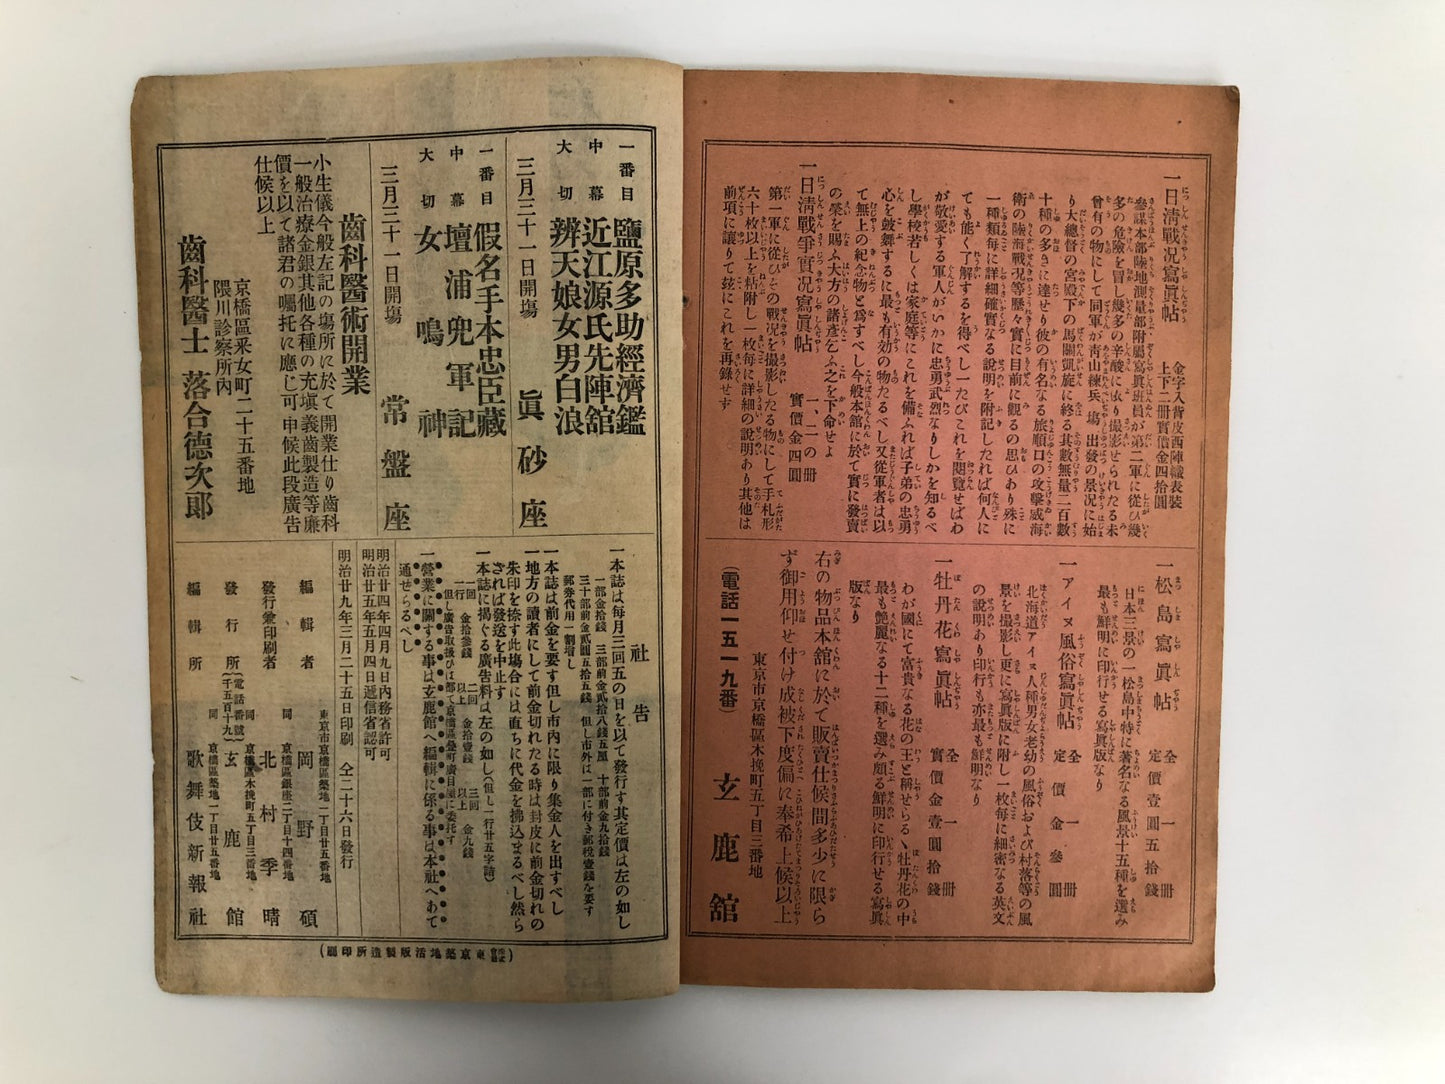 一日淸戰況寫眞帖
金字入背皮西陣織表裝
上下二冊實價金四拾圓
參謀本部陸地測量部附屬寫眞班員が第二軍に從ひ幾
多の危險を冒し幾多の辛酸に依り撮影せられたる未
曾有の物にして同軍が靑山練兵塲出發の景况に始
り大總督の宮殿下の馬關凱旋に終る其數無量二百數
十種の多きに達せり彼の有名なる旅順口の攻擊威海
衛の陸海戰況等歷々實に目前に觀るの思ひあり殊に
一種類每に詳細確實なる說明を附記したれば何人に
ても能く了解するを得べし一たびこれを閱覽せばわ
が敬愛する軍人がいかに忠勇武烈なりしかを知るべ
し學校若しくは家庭等にこれを備ふれば子弟の忠勇
心を鼓舞するに最も有効の物たるべし又從軍者は以
て無上の紀念物と爲すべし今般本舘に於て實に發賣
の榮を賜ふ大方の諸彥乞ふ之を下命せよ
一日淸戰爭實況寫眞帖
一、二の冊
實價金四圓
第一軍に從ひその戰况を撮影したる物にして手札形
六十枚以上を粘附し一枚每に詳細の說明あり其他は
前項に讓りて茲にこれを再錄せず
一松島寫眞帖
全一冊
定價壹圓五拾錢
日本三景の一松島中特に著名なる風景十五種を選み
最も鮮明に印行せる寫眞版なり
一アイヌ風俗寫眞帖
全一冊
定價金參圓
北海道アイヌ人種男女老幼の風俗および村落等の風
景を撮影し更に寫眞版に附し一枚每に細密なる英文
の說明あり印行も亦最も鮮明なり
一牡丹花寫眞帖
全一冊
實價金壹圓拾錢
わが國にて富貴なる花の王と稱せらるゝ牡丹花の中
最も艷麗なる十二種を選み頗る鮮明に印行せる寫眞
版なり
右の物品本舘に於て販賣仕候間多少に限ら
ず御用仰せ付け成被下度偏に奉希上候以上
東京市京橋區木挽町五丁目三番地
（電話一五一九番）
玄鹿舘
一番目　鹽原多助經濟鑑
中幕　近江源氏先陣舘
大切　辨天娘女男白浪
三月三十一日開塲　眞砂座
一番目　假名手本忠臣藏
中幕　壇浦兜軍記
大切　女鳴神
三月三十一日開塲　常盤座
齒科醫術開業
小生儀今般左記の塲所に於て開業仕り齒科
一般治療金銀其他各種の充塡義齒製造等廉
價を以て諸君の囑托に應じ可申候此段廣告
仕候以上
京橋區采女町二十五番地
隈川診察所內
齒科醫士　落合德次郞
社告
一本誌は每月三回五の日を以て發行す其定價は左の如し
一部金拾錢　三部前金貳拾八錢五厘　十部前金九拾錢
三十部前金貳圓五拾五錢　但し市外は一部に付き郵稅壹錢を要す
郵券代用一割增し
一本誌は前金を要す但し市內に限り集金人を出すべし
一地方の讀者にして前金切れたる時は封皮に前金切れの
朱印を捺す此塲合には直ちに代金を拂込まるべし然ら
ざれば發送を中止す
一本誌に揭ぐる廣告料は左の如し（但し一行廿五字詰）
一回　金拾參錢　二回以上　金拾壹錢　三回以上　金九錢
但し廣告取扱ひは都て京橋區疊町廣目屋に委托す
一營業に關する事は玄鹿舘へ編輯に係る事は本社へあて
通せらるべし
明治廿四年四月九日內務省許可
明治廿五年五月四日遞信省認可
明治廿九年三月二十五日印刷　仝二十六日發行
東京市京橋區築地一丁目廿五番地
編輯者　岡野碩
同京橋區銀座二丁目十四番地
發行兼印刷者　北村季晴
同京橋區木挽町五丁目三番地
發行所（電話番號千五百十九）玄鹿舘
同京橋區築地一丁目廿五番地
編輯所　歌舞伎新報社
（株式會社東京築地活版製造所印刷）